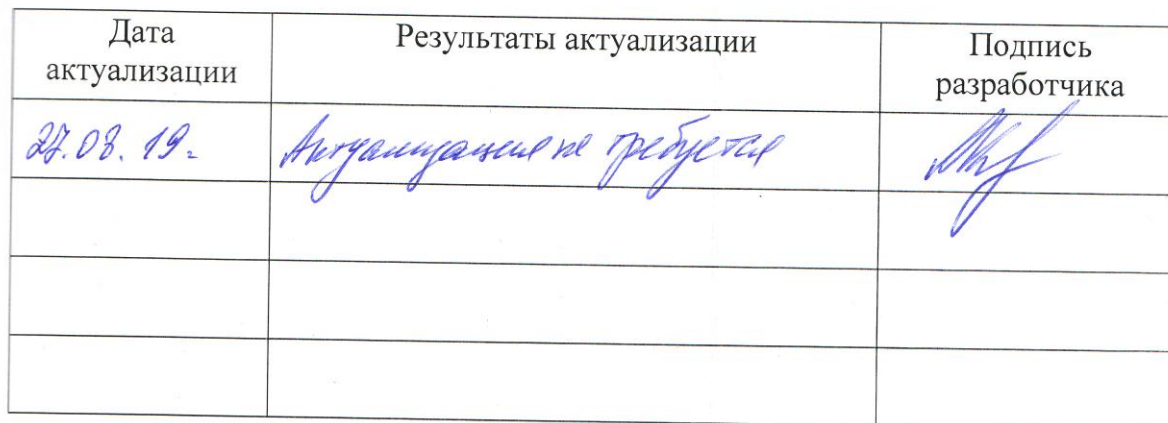 Дата
актуализации
Результаты актуализации
Подпись
разработчика
27.08.19.
Актуализация не требуется